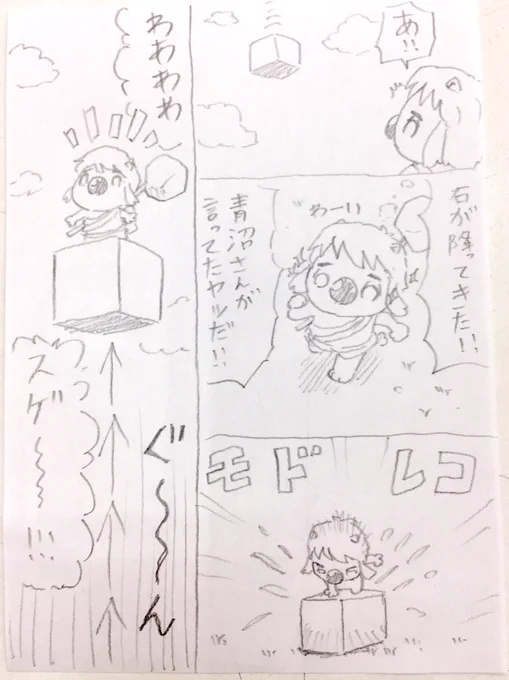 あ!!
石が降ってきた!!
わーい
青沼さんが
言ってたヤツだ!!
モドレコ
わわわわ
ぐ〜〜〜ん
うっ
スゲ〜〜〜!!!